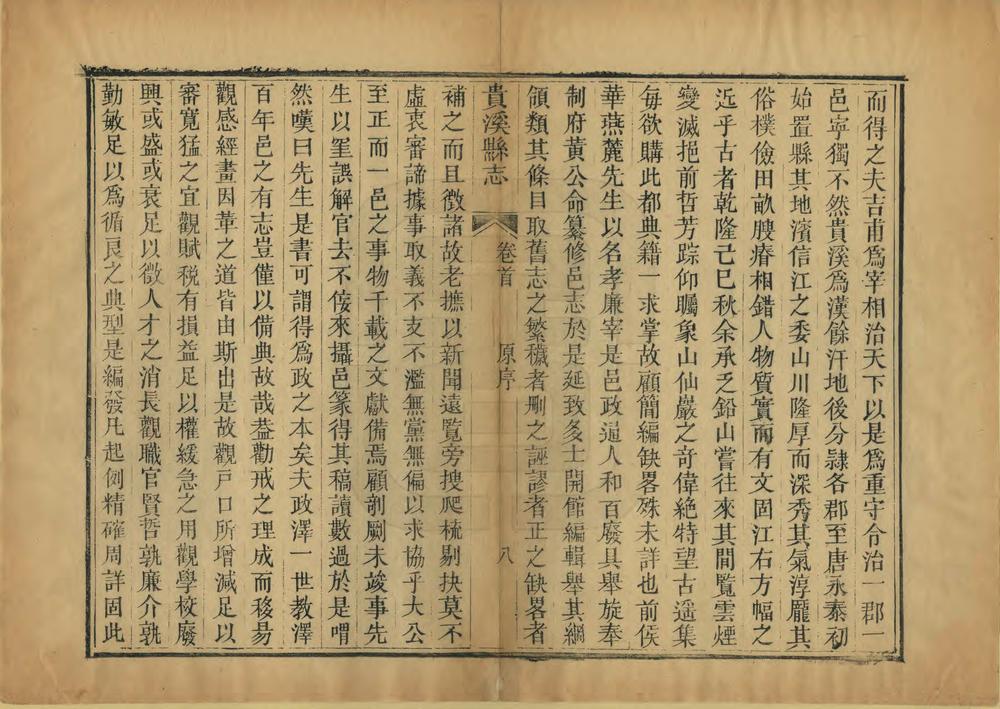 而得之夫吉甫爲宰相治天下以是爲重守令治一郡一
邑寧獨不然貴溪爲漢餘汗地後分隷各郡至唐永泰初
始置縣其地濱信江之委山川隆厚而深秀其氣淳龐其
俗樸儉田畝腴瘠相錯人物質實而有文固江右方幅之
近乎古者乾隆己巳秋余承乏鉛山嘗往來其間覽雲煙
變滅挹前哲芳踪仰矚象山仙巖之奇偉絶特望古遥集
每欲購此都典籍一求掌故顧簡編缺畧殊未詳也前侯
華燕麓先生以名孝廉宰是邑政通人和百廢具舉旋奉
制府黄公命纂修邑志於是延致多士開館編輯舉其綱
領類其條目取舊志之繁穢者刪之誣謬者正之缺畧者
貴溪縣志 卷首 原序 八
補之而且徴諸故老摭以新聞遠覧旁搜爬梳剔抉莫不
虛衷審諦據事取義不支不濫無黨無偏以求協乎大公
至正而一邑之事物千載之文獻備焉顧剞劂未竣事先
生以罣誤解官去不佞來攝邑篆得其稿讀數過於是喟
然嘆曰先生是書可謂得爲政之本矣夫政澤一世教澤
百年邑之有志豈僅以備典故哉葢勸戒之理成而移昜
觀感經畫因革之道皆由斯出是故觀戸口所增減足以
審寬猛之宜觀賦税有損益足以權緩急之用觀學校廢
興或盛或衰足以徴人才之消長觀職官賢哲孰廉介孰
勤敏足以爲循良之典型是編發凡起例精確周詳固此